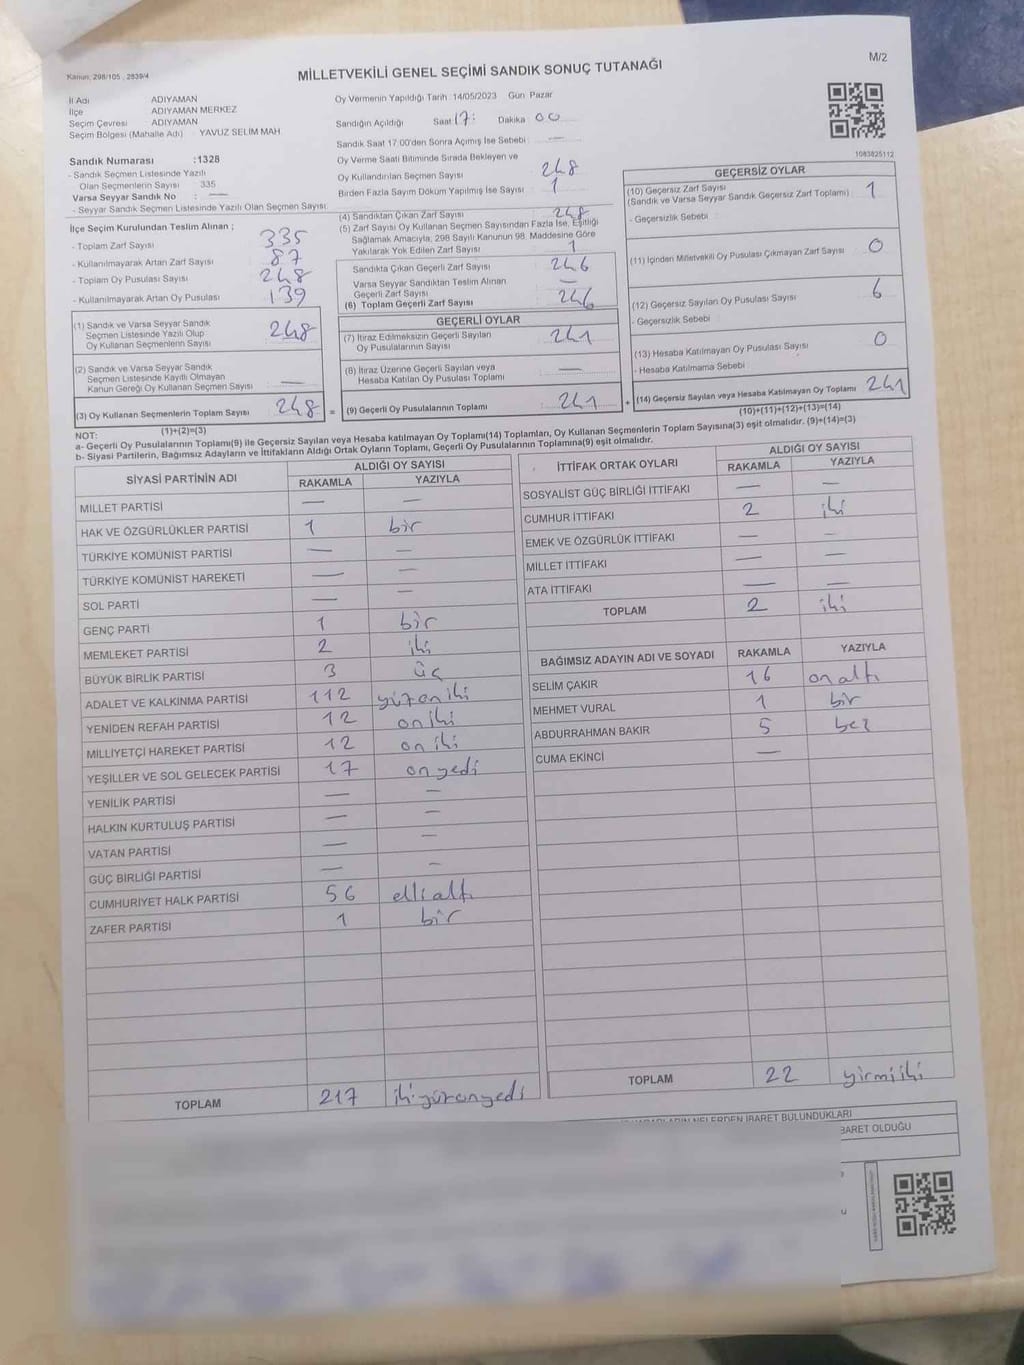 Kanun: 298/105 , 2839/4
M/2
MİLLETVEKİLİ GENEL SEÇİMİ SANDIK SONUÇ TUTANAĞI
İl Adı ADIYAMAN
İlçe ADIYAMAN MERKEZ
Seçim Çevresi ADIYAMAN
Seçim Bölgesi (Mahalle Adı) YAVUZ SELİM MAH
Oy Vermenin Yapıldığı Tarih :14/05/2023 Gün Pazar
Sandığın Açıldığı Saat 17: Dakika 00
Sandık Saat 17:00'den Sonra Açımış İse Sebebi : —
Oy Verme Saati Bitiminde Sırada Bekleyen ve
Oy Kullandırılan Seçmen Sayısı 248
Birden Fazla Sayım Döküm Yapılmış İse Sayısı 1
1083825112
Sandık Numarası :1328
- Sandık Seçmen Listesinde Yazılı
Olan Seçmenlerin Sayısı 335
Varsa Seyyar Sandık No : —
- Seyyar Sandık Seçmen Listesinde Yazılı Olan Seçmen Sayısı:
İlçe Seçim Kurulundan Teslim Alınan ;
- Toplam Zarf Sayısı 335
- Kullanılmayarak Artan Zarf Sayısı 87
- Toplam Oy Pusulası Sayısı 248
- Kullanılmayarak Artan Oy Pusulası 139
(1) Sandık ve Varsa Seyyar Sandık
Seçmen Listesinde Yazılı Olup
Oy Kullanan Seçmenlerin Sayısı 248
(2) Sandık ve Varsa Seyyar Sandık
Seçmen Listesinde Kayıtlı Olmayan
Kanun Gereği Oy Kullanan Seçmen Sayısı —
(3) Oy Kullanan Seçmenlerin Toplam Sayısı 248 =
(1)+(2)=(3)
(4) Sandıktan Çıkan Zarf Sayısı 248
(5) Zarf Sayısı Oy Kullanan Seçmen Sayısından Fazla İse, Eşitliği
Sağlamak Amacıyla, 298 Sayılı Kanunun 98. Maddesine Göre
Yakılarak Yok Edilen Zarf Sayısı 1
Sandıkta Çıkan Geçerli Zarf Sayısı 246
Varsa Seyyar Sandıktan Teslim Alınan
Geçerli Zarf Sayısı —
(6) Toplam Geçerli Zarf Sayısı 246
GEÇERLİ OYLAR
(7) İtiraz Edilmeksizin Geçerli Sayılan
Oy Pusulalarının Sayısı 241
(8) İtiraz Üzerine Geçerli Sayılan veya
Hesaba Katılan Oy Pusulası Toplamı —
(9) Geçerli Oy Pusulalarının Toplamı 241 +
GEÇERSİZ OYLAR
(10) Geçersiz Zarf Sayısı
(Sandık ve Varsa Seyyar Sandık Geçersiz Zarf Toplamı) 1
- Geçersizlik Sebebi
(11) İçinden Milletvekili Oy Pusulası Çıkmayan Zarf Sayısı 0
(12) Geçersiz Sayılan Oy Pusulası Sayısı 6
- Geçersizlik Sebebi
(13) Hesaba Katılmayan Oy Pusulası Sayısı 0
- Hesaba Katılmama Sebebi
(14) Geçersiz Sayılan veya Hesaba Katılmayan Oy Toplamı 241
(10)+(11)+(12)+(13)=(14)
NOT:
a- Geçerli Oy Pusulalarının Toplamı(9) ile Geçersiz Sayılan veya Hesaba katılmayan Oy Toplamı(14) Toplamları, Oy Kullanan Seçmenlerin Toplam Sayısına(3) eşit olmalıdır. (9)+(14)=(3)
b- Siyasi Partilerin, Bağımsız Adayların ve İttifakların Aldığı Ortak Oyların Toplamı, Geçerli Oy Pusulalarının Toplamına(9) eşit olmalıdır.
SİYASİ PARTİNİN ADI ALDIĞI OY SAYISI
RAKAMLA YAZIYLA
MİLLET PARTİSİ — —
HAK VE ÖZGÜRLÜKLER PARTİSİ 1 bir
TÜRKİYE KOMÜNİST PARTİSİ — —
TÜRKİYE KOMÜNİST HAREKETİ — —
SOL PARTİ — —
GENÇ PARTİ 1 bir
MEMLEKET PARTİSİ 2 iki
BÜYÜK BİRLİK PARTİSİ 3 üç
ADALET VE KALKINMA PARTİSİ 112 yüzoniki
YENİDEN REFAH PARTİSİ 12 oniki
MİLLİYETÇİ HAREKET PARTİSİ 12 oniki
YEŞİLLER VE SOL GELECEK PARTİSİ 17 onyedi
YENİLİK PARTİSİ — —
HALKIN KURTULUŞ PARTİSİ — —
VATAN PARTİSİ — —
GÜÇ BİRLİĞİ PARTİSİ — —
CUMHURİYET HALK PARTİSİ 56 ellialtı
ZAFER PARTİSİ 1 bir
TOPLAM 217 ikiyüzonyedi
İTTİFAK ORTAK OYLARI ALDIĞI OY SAYISI
RAKAMLA YAZIYLA
SOSYALİST GÜÇ BİRLİĞİ İTTİFAKI — —
CUMHUR İTTİFAKI 2 iki
EMEK VE ÖZGÜRLÜK İTTİFAKI — —
MİLLET İTTİFAKI — —
ATA İTTİFAKI — —
TOPLAM 2 iki
BAĞIMSIZ ADAYIN ADI VE SOYADI RAKAMLA YAZIYLA
SELİM ÇAKIR 16 onaltı
MEHMET VURAL 1 bir
ABDURRAHMAN BAKIR 5 beş
CUMA EKİNCİ —
TOPLAM 22 yirmiiki
NELERDEN İBARET BULUNDUKLARI
BARET OLDUĞU